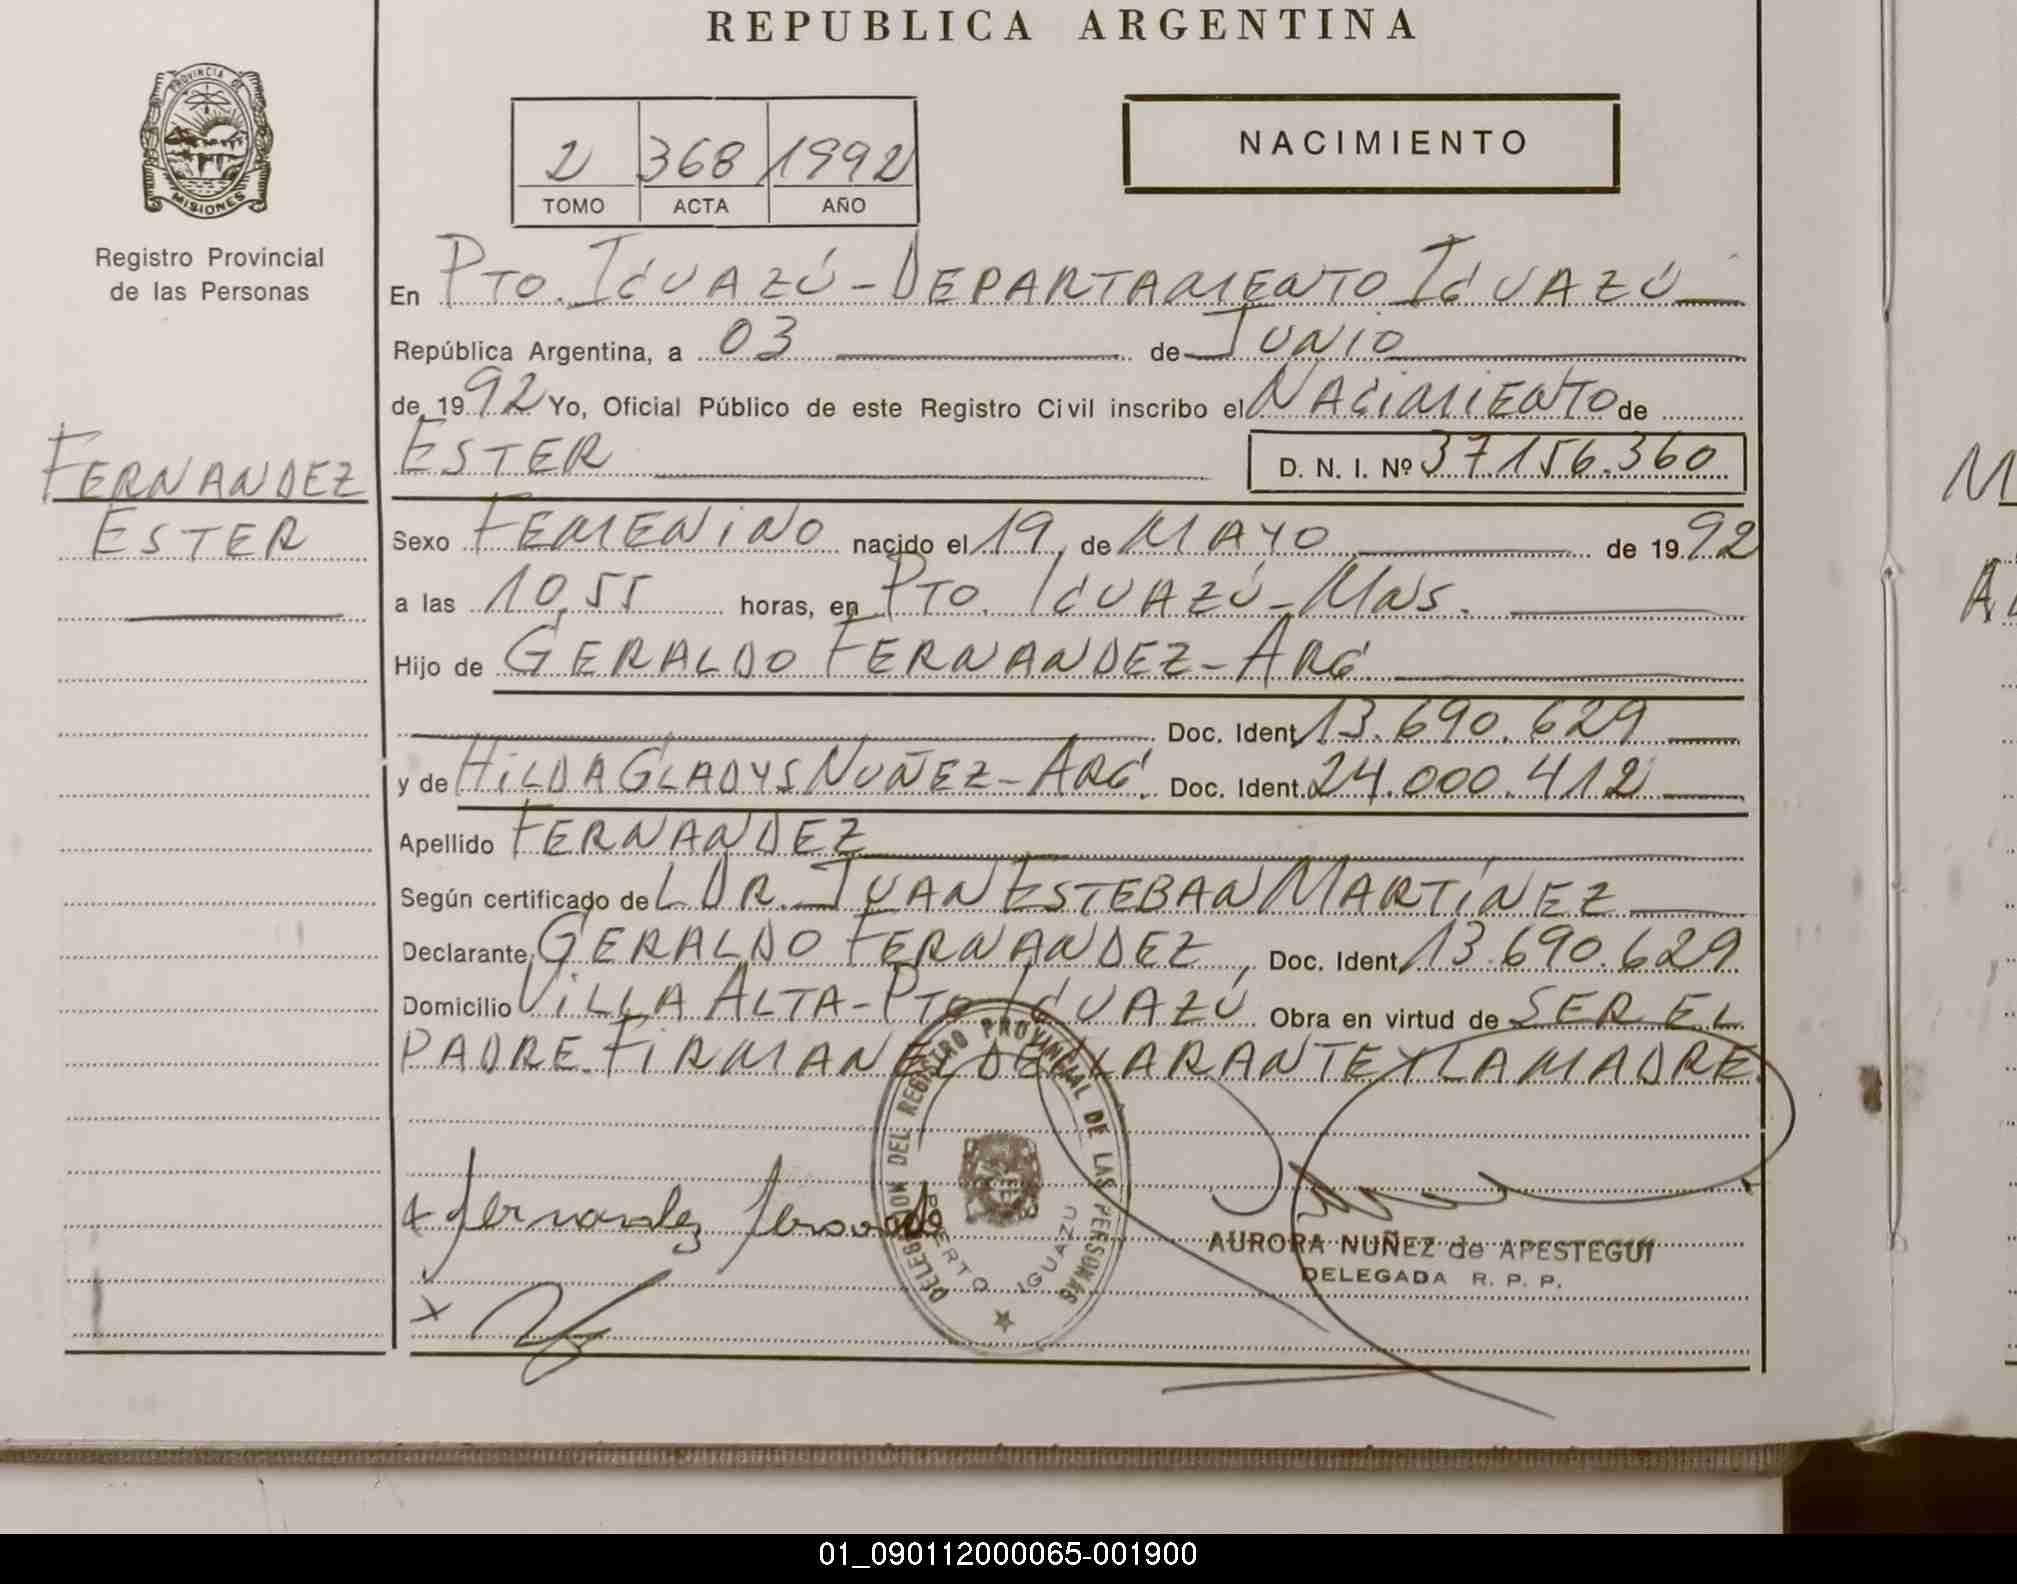 REPUBLICA ARGENTINA
PROVINCIA DE
MISIONES
Registro Provincial
de las Personas
2 368 1992
TOMO ACTA AÑO
NACIMIENTO
En PTO. IGUAZÚ - DEPARTAMENTO IGUAZÚ
República Argentina, a 03 de JUNIO
de 1992 Yo, Oficial Público de este Registro Civil inscribo el NACIMIENTO de
ESTER D. N. I. Nº 37156.360
FERNANDEZ
ESTER
Sexo FEMENINO nacido el 19 de MAYO de 1992
a las 10,55 horas, en PTO. IGUAZÚ - MNS.
Hijo de GERALDO FERNANDEZ - ARG.
Doc. Ident. 13.690.629
y de HILDA GLADYS NUÑEZ - ARG. Doc. Ident. 24.000.412
Apellido FERNANDEZ
Según certificado de L DR. JUAN ESTEBAN MARTÍNEZ
Declarante GERALDO FERNANDEZ, Doc. Ident. 13.690.629
Domicilio VILLA ALTA - PTO IGUAZÚ Obra en virtud de SER EL
PADRE. FIRMAN EL DECLARANTE Y LA MADRE.
DELEGACION DEL REGISTRO PROVINCIAL DE LAS PERSONAS
PUERTO IGUAZU
Fernandez
AURORA NUÑEZ de APESTEGUI
DELEGADA R. P. P.
M
A
01_090112000065-001900